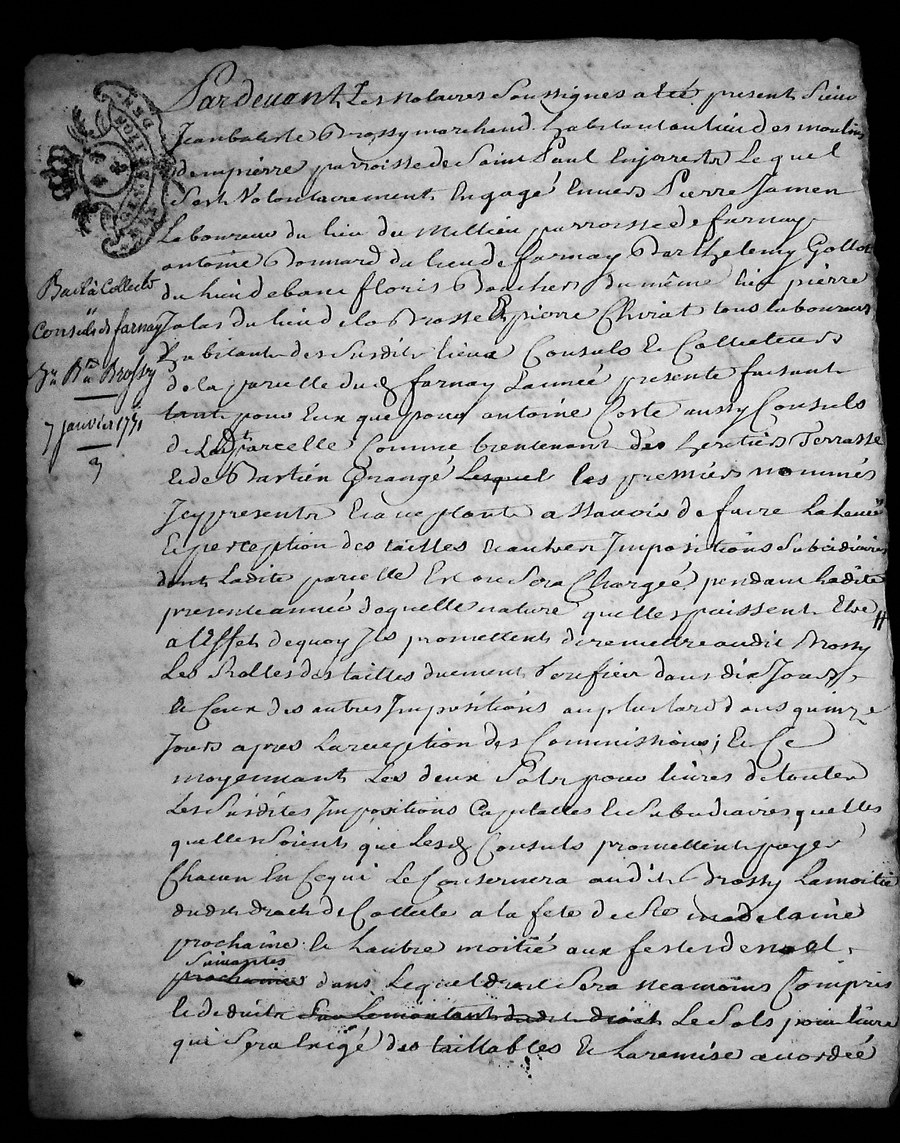 Pardevant Les notaires Soussignés a eté present Sieur
Jean batiste Brossy marchand habitant au lieu des moulins
dempierre parroisse de Saint Paul En jarrest Le quel
Sest Volontairement Engagé Envers Pierre Jamen
Laboureur du lieu du Millieu parroisse de farnay
antoine Bonnard du lieu de farnay Barthelemy Gollot
du lieu de banc floris Bouchers du même lieu pierre
Jalas du lieu de la Brosse & pierre Chirat tous laboureurs
habitants des Susdits lieux Consuls & Collecteurs
de la parcelle dud farnay Lannée presente faisant
tant pour Eux que pour antoine Corte aussy Consuls
de Ladte parcelle Comme bientenant des heretiers Terrasse
& de Bastien Grangé Lesquel les premiers nommés
Icy presents Et acceptants a Scavoir de faire La Levée
& perception des tailles & autres Impositions Subsidiaires
dont Ladite parcelle Est ou Sera Chargée pendant Ladite
presente année de quelle nature quelles puissent Etre
a lEffet de quoy Ils promettent de remettre audit Brossy
Les Rolles des tailles duement Veriffiés dans dix Jours
& Ceux des autres Impositions au plus tard dans quinze
Jours apres La reception des Commissions; & Ce
moyennant Les deux Sols pour livres de toutes
Les Susdites Impositions Capitalles & Subsidiaires quelles
quelles Soient que Lesd Consuls promettent payer
Chacun En Cequi Le Conservera audit Brossy La moitié
dudit droit de Collecte a la fete de Ste madelaine
prochaine & Lautre moitié aux festes de noel
Suivantes
prochaines dans Lequel droit Sera neamoins Compris
& deduits Sur Le montant dudit droit Le Sols pour Livre
qui Sera Exigé des taillables & La remise accordée
Bail à Collecte
Consuls de farnay
Sr Bte Brossy
7 janvier 1751
3